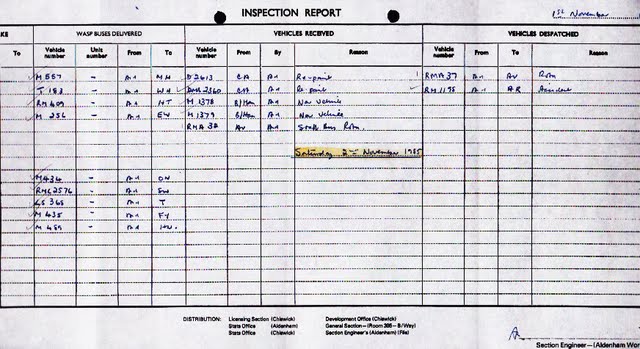 INSPECTION REPORT
1st November
KE WASP BUSES DELIVERED VEHICLES RECEIVED VEHICLES DESPATCHED
To Vehicle number Unit number From To Vehicle number From By Reason Vehicle number From To Reason
M 567 - An MH D 2613 CA An Re-paint RMA 37 An Av Rom
T 183 - An WH DMS 2360 CA An Re-paint RM 1198 An AR Accident
RM 409 - An HT M 1378 B/Ham An New Vehicle
M 256 - An EW M 1379 B/Ham An New Vehicle
RMA 38 Av An Staff Bus Rom.
Saturday 2nd November 1985
M 434 - An ON
RML 2576 - An SW
LS 365 - An T
M 435 - An FY
M 489 - An HW.
DISTRIBUTION: Licensing Section (Chiswick) Development Office (Chiswick)
Stats Office (Aldenham) General Section - (Room 305 - B/Way)
Stats Office (Chiswick) Section Engineer's (Aldenham) (File)
Section Engineer-(Aldenham Wor